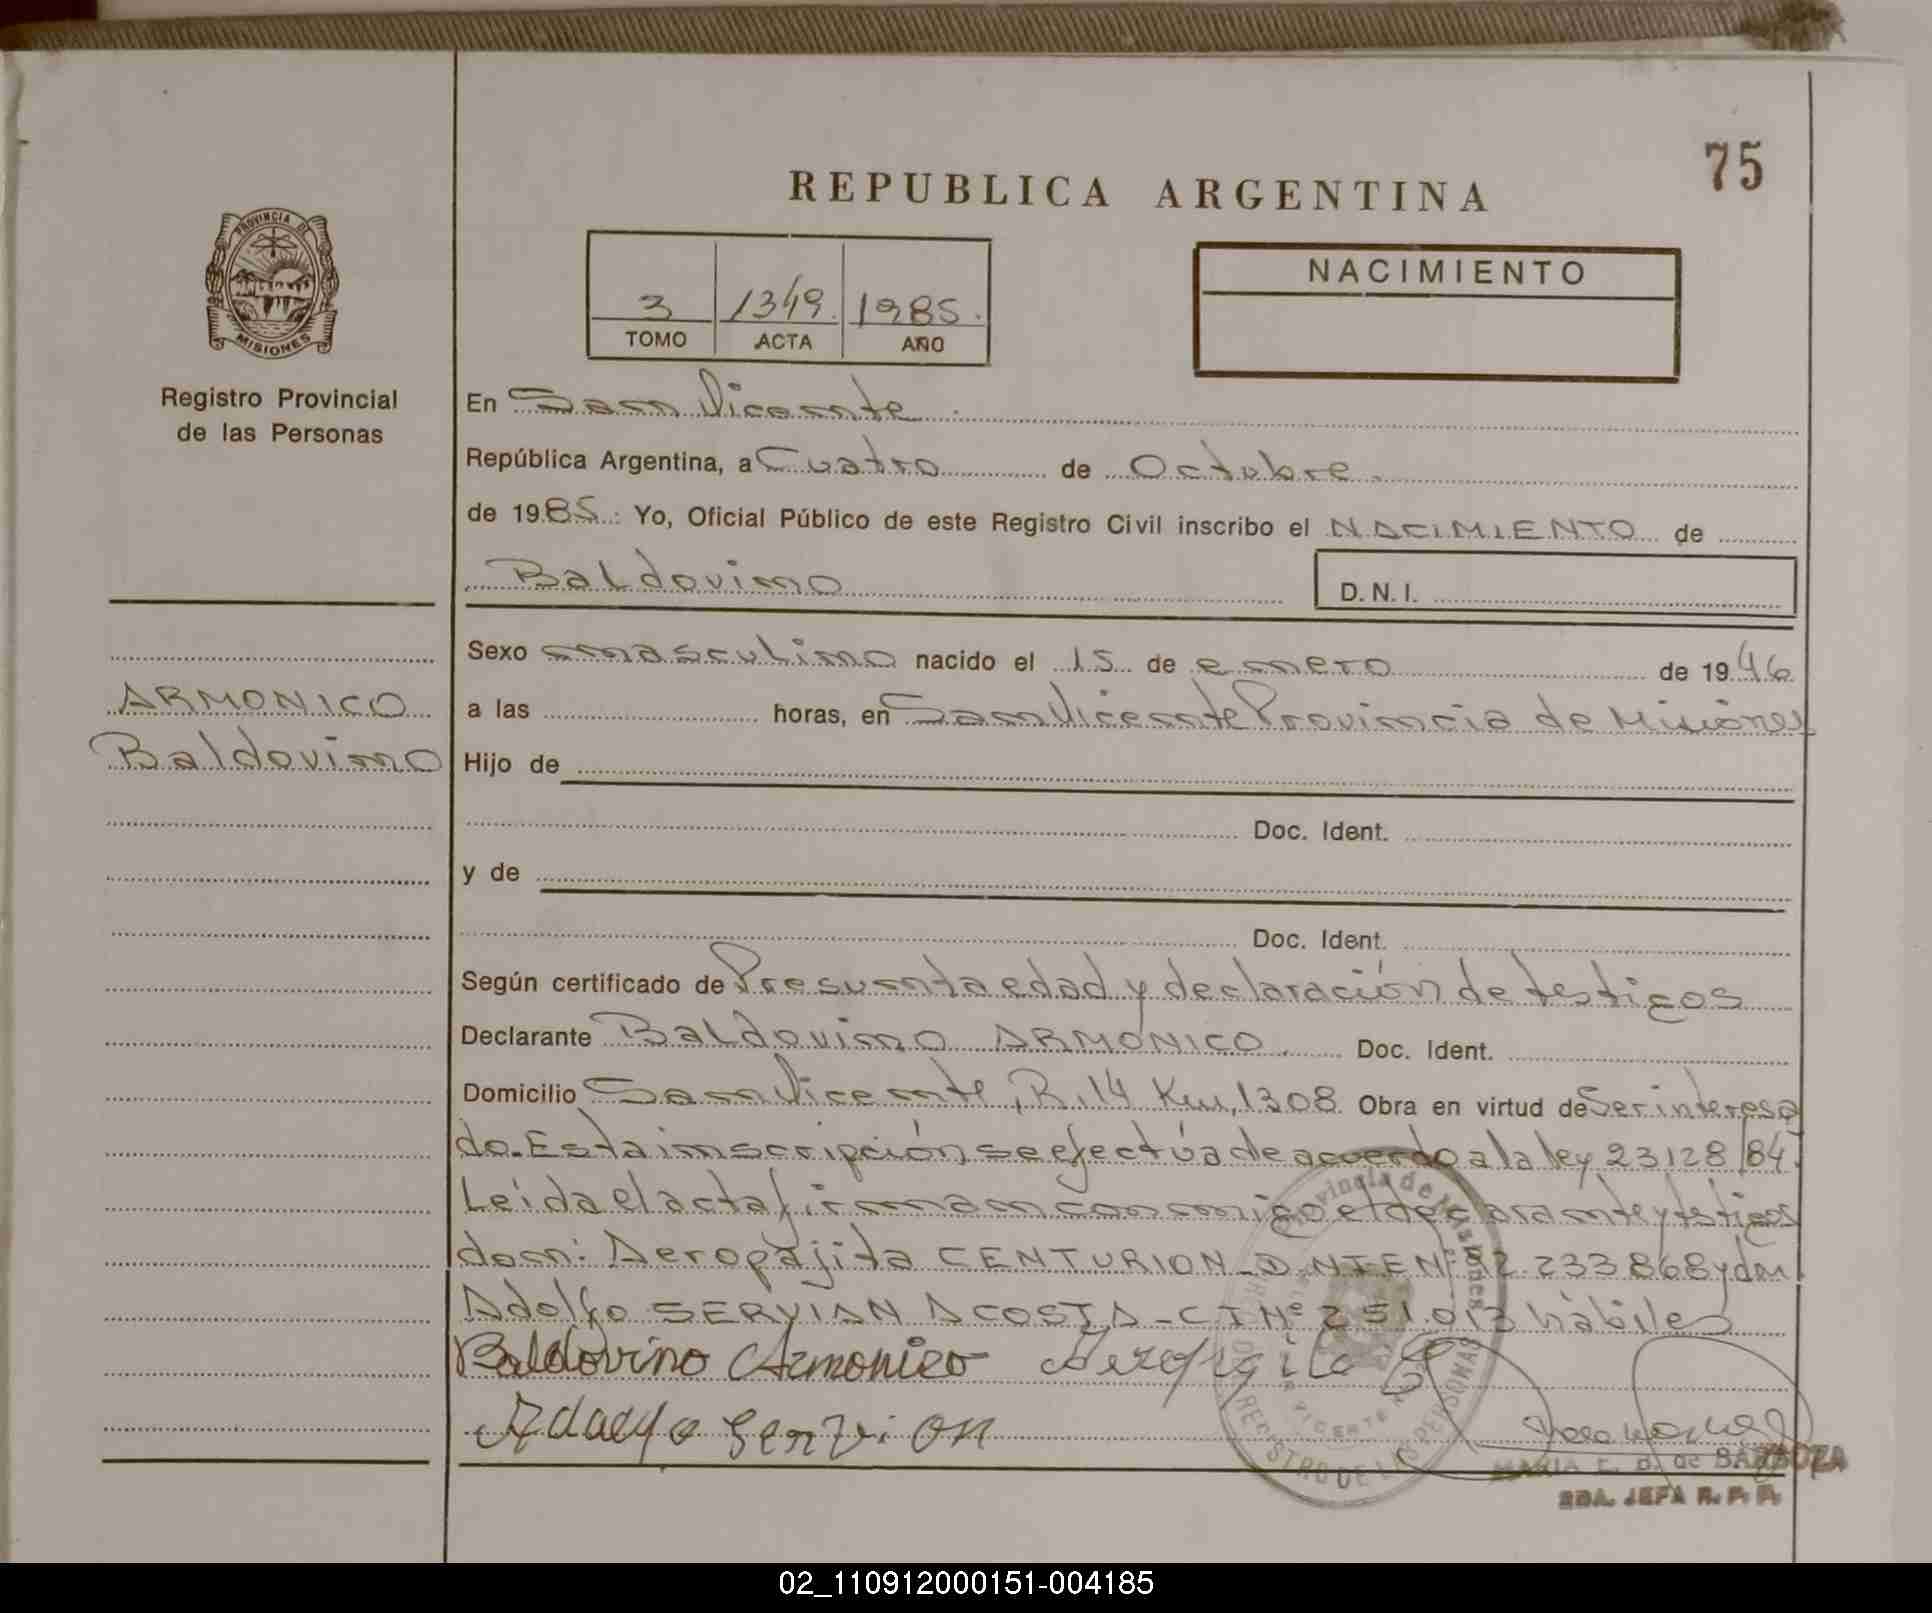 75
REPUBLICA ARGENTINA
PROVINCIA DE
MISIONES
3 1349. 1985.
TOMO ACTA AÑO
NACIMIENTO
Registro Provincial
de las Personas
En San Vicente.
República Argentina, a Cuatro de Octubre.
de 1985: Yo, Oficial Público de este Registro Civil inscribo el NACIMIENTO de
Baldovino
D. N. I.
ARMONICO
Baldovino
Sexo masculino nacido el 15 de enero de 1946
a las horas, en San Vicente Provincia de Misiones
Hijo de
Doc. Ident.
y de
Doc. Ident.
Según certificado de Presunta edad y declaración de testigos
Declarante Baldovino ARMONICO. Doc. Ident.
Domicilio San Vicente, R. 14 Km, 1308 Obra en virtud de Ser interesa
do. Esta inscripción se efectúa de acuerdo a la ley 23128/84.
Leída el acta firman conmigo el declarante y testigos
don: Aeropajita CENTURION - D N I EN° 233868 y don
Adolfo SERVIAN ACOSTA - C I N° 251.013 hábiles
Baldovino Armonico
Servion
Provincia de Misiones
REGISTRO DE LAS PERSONAS
MARIA E. B. de BARBOZA
2DA. JEFA R. P. P.
02_110912000151-004185